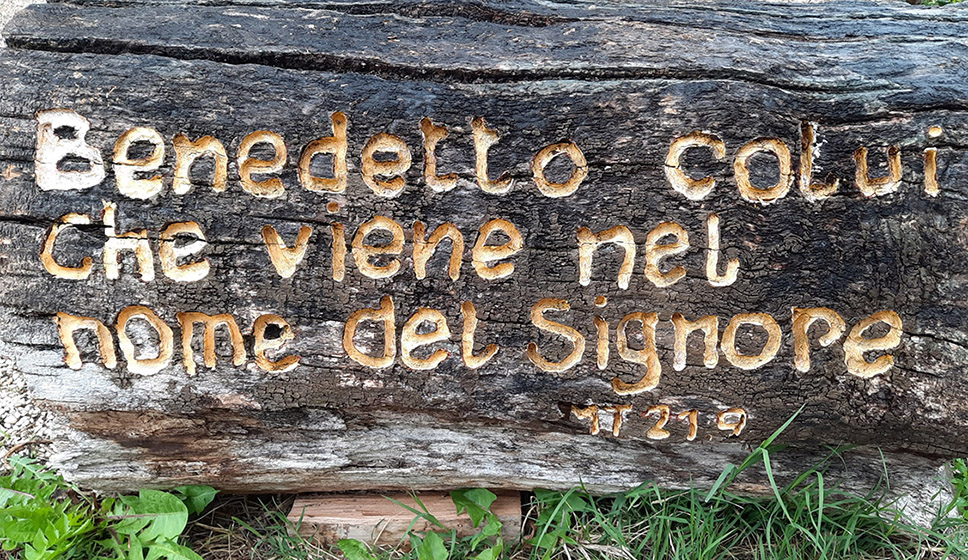 Benedetto colui
che viene nel
nome del Signore
MT 21 9